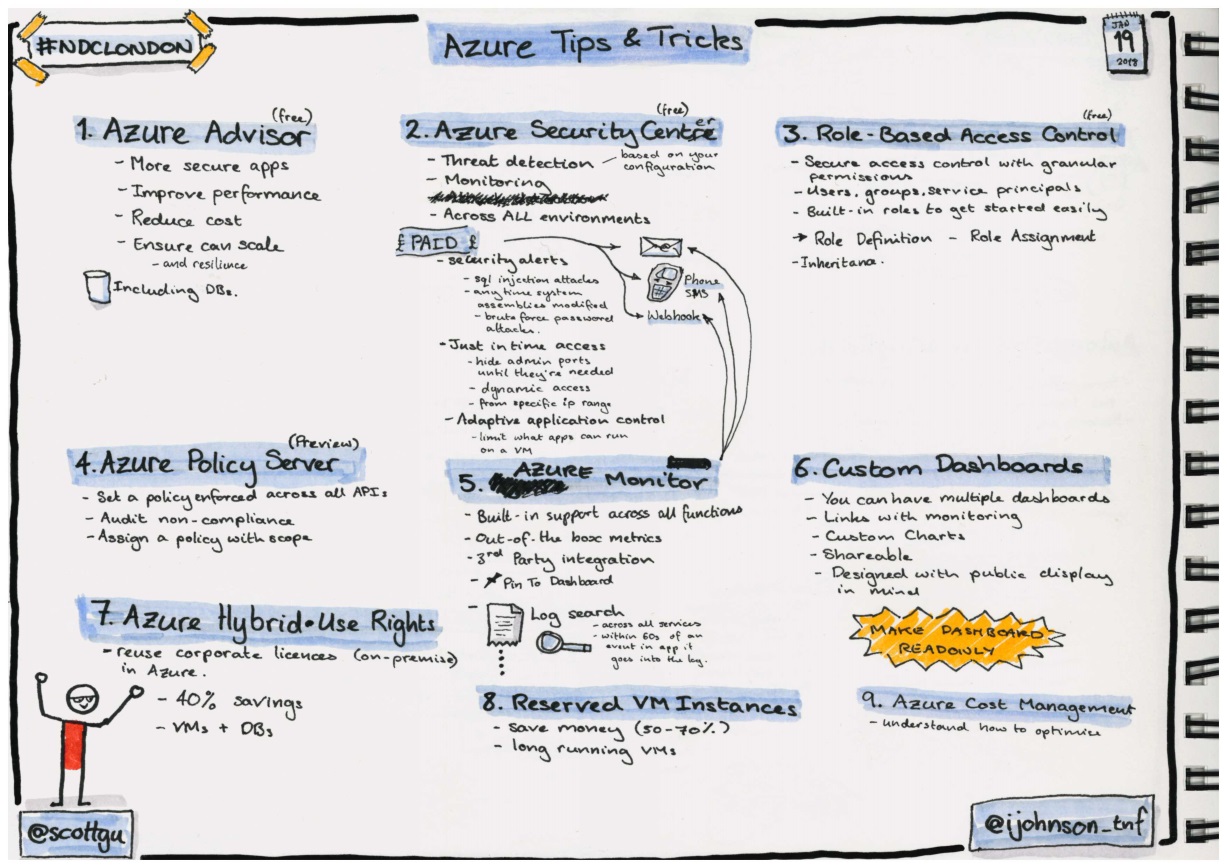 #NDCLONDON
Azure Tips & Tricks
JAN
19
2018
(free)
1. Azure Advisor
- More secure apps
- Improve performance
- Reduce cost
- Ensure can scale
- and resilience
Including DBs.
(free)
2. Azure Security Center
- Threat detection — based on your
configuration
- Monitoring
- Across ALL environments
£ PAID £
- security alerts
- sql injection attacks
- anytime system
assemblies modified
- brute force password
attacks.
Phone
SMS
Webhook
- Just in time access
- hide admin ports
until they're needed
- dynamic access
- from specific ip range
- Adaptive application control
- limit what apps can run
on a VM
(free)
3. Role-Based Access Control
- Secure access control with granular
permissions
- Users, groups, service principals
- Built-in roles to get started easily
→ Role Definition - Role Assignment
- Inheritance.
(Preview)
4. Azure Policy Server
- Set a policy enforced across all APIs
- Audit non-compliance
- Assign a policy with scope
5. AZURE Monitor
- Built-in support across all functions
- Out-of-the box metrics
- 3rd Party integration
- Pin To Dashboard
- Log search
- across all services
- within 60s of an
event in app it
goes into the log.
6. Custom Dashboards
- You can have multiple dashboards
- Links with monitoring
- Custom Charts
- Shareable
- Designed with public display
in mind
MAKE DASHBOARD
READONLY
7. Azure Hybrid-Use Rights
- reuse corporate licences (on-premise)
in Azure.
- 40% savings
- VMs + DBs
8. Reserved VM Instances
- save money (50-70%)
- long running VMs
9. Azure Cost Management
- understand how to optimise
@scottgu
@ijohnson_tnf